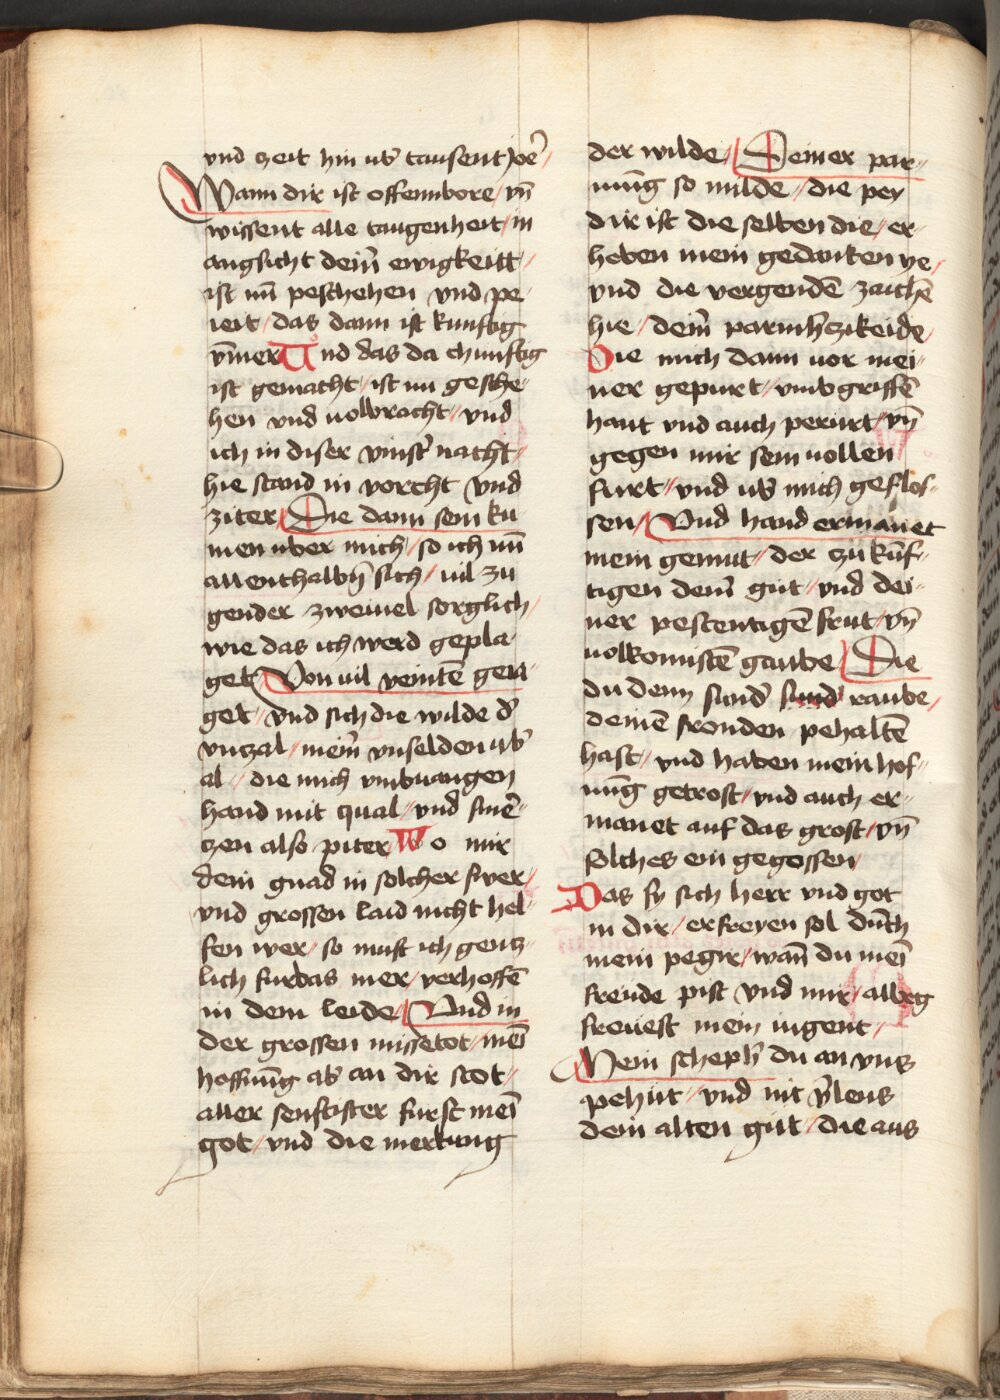 vnd zeit hin ub̾ tausent Joꝛ̾ /
Wann dir ist offennbore / vn̄
wissent alle taugenheit / in
angsicht dein̄ ewigkeitt /
ist nu̅ peschehen vnd pe-
ieit / das dann ist kunftig
ym̄er Und das da chunftig
ist gemacht / ist nu gesche-
hen vnd uolbracht / vnd
ich in diser vinst̾ nacht /
hie stand in vorcht vnd
ziter / Die dann sein ku
men uber mich / so ich nu̅
allenthalbn̄ sich / uil zu
gender zweiuel sorglich /
wie das ich werd gepla-
get / Von uil veintē geia-
get / vnd sich die wilde d̾
vnzal / mein̄ vnselden ub̾
al / die mich vmbuangen
hand mit qual / vnd smē-
czen also piter Wo mir
dein gnad in solcher swer /
vnd grossen laid nicht hel-
fen wer / so must ich gencz-
lich furbas mer / verhoffē
in dem leide / Vnd in
der grossen missetot / mei̅
hoffnu̅g ab̾ an dir stot /
aller senftister furst mei̅
got / vnd die merkung
der wilde / Deiner par-
mu̅g so milde / die pey
dir ist die selben die / er-
heben mein gedanken ye /
vnd die vergendē zaichē
hie / dein̄ parmh̾zikeide /
Die mich dann uor mei-
ner gepurt / vmbgriffē
haut vnd auch perurt / vn̄
gegen mir sein uollen
furt / vnd ub̾ mich geflos-
sen / Vnd hand ermanet
mein gemut / der zu kūf-
tigen dein̄ gut / vnd dei-
ner pestentigē frut / vn̄
uolkomistē gaube / Die
du denn sund̾ sund̾ raube /
deinē fronden pehaltē
hast / vnd haben mein hof-
nu̅g getrost / vnd auch er-
manet auf das grost / vn̄
solches ein gegossen /
Das sy sich herr vnd got
in dir / erfreyen sol durch
mein pegir / wan̄ du mei̅
freude pist vnd mir / alweg
freuest mein iugent /
Mein scheph̾ du an vns
pehut / vnd nit v̾leus
dein alten gut / die aus